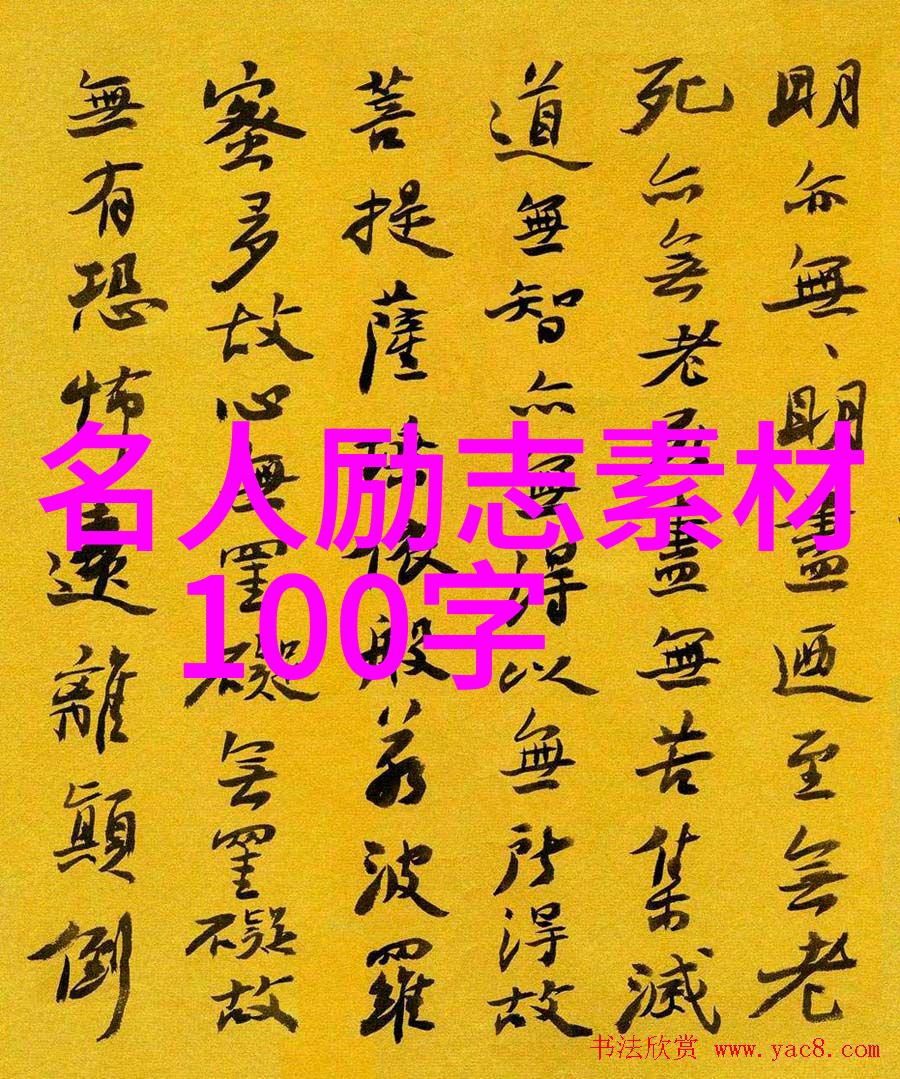 明亦無、明盡迺至無老
死亦無老死盡無苦集滅
道無智亦無得以無所得故
菩提薩埵依般若波羅
蜜多故心無罣礙無罣礙故
無有恐怖遠離顛倒
名人励志素材
100字
书法欣赏 www.yac8.com